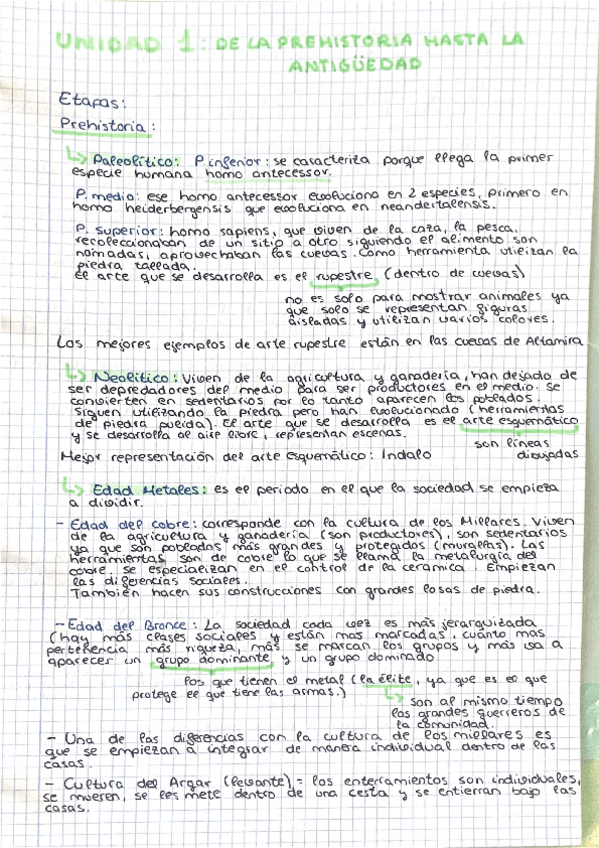 UNIDAD 1: DE LA PREHISTORIA HASTA LA
ANTIGÜEDAD
Etapas:
Prehistoria:
Paleolítico: P. inferior: se caracteriza porque llega la primer
especie humana homo antecessor.
P. medio: ese homo antecessor evoluciona en 2 especies, primero en
homo heiderbergensis que evoluciona en neandertalensis.
P. superior: homo sapiens, que viven de la caza, la pesca,
recoleccionaban de un sitio a otro siguiendo el alimento son
nómadas, aprovechaban las cuevas. Como herramienta utilizan la
piedra tallada.
El arte que se desarrolla es el rupestre (dentro de cuevas)
no es solo para mostrar animales ya
que solo se representan figuras
aisladas y utilizan varios colores.
Los mejores ejemplos de arte rupestre están en las cuevas de Altamira
Neolítico: Viven de la agricultura y ganadería, han dejado de
ser depredadores del medio para ser productores en el medio. Se
convierten en sedentarios por lo tanto aparecen los poblados.
Siguen utilizando la piedra pero han evolucionado (herramientas
de piedra pulida). El arte que se desarrolla es el arte esquemático
y se desarrolla al aire libre, representan escenas.
son líneas
dibujadas
Mejor representación del arte esquemático: Indalo
Edad Metales: es el periodo en el que la sociedad se empieza
a dividir.
- Edad del cobre: corresponde con la cultura de los Millares. Viven
de la agricultura y ganadería (son productores), son sedentarios
ya que son poblados más grandes y protegidos (murallas). Las
herramientas son de cobre lo que se llama la metalurgia del
cobre. se especializan en el control de la cerámica. Empiezan
las diferencias sociales.
También hacen sus construcciones con grandes losas de piedra.
- Edad del Bronce: La sociedad cada vez es más jerarquizada
(hay más clases sociales y están mas marcadas, cuanto mas
pertenencia más riqueza, más se marcan los grupos y más va a
aparecer un grupo dominante y un grupo dominado
los que tienen el metal (la élite, ya que es el que
protege el que tiene las armas.)
son al mismo tiempo
los grandes guerreros de
la comunidad.
- Una de las diferencias con la cultura de los millares es
que se empiezan a integrar de manera individual dentro de las
casas.
- Cultura del Argar (levante) = los enterramientos son individuales,
se mueren, se les mete dentro de una cesta y se entierran bajo las
casas.